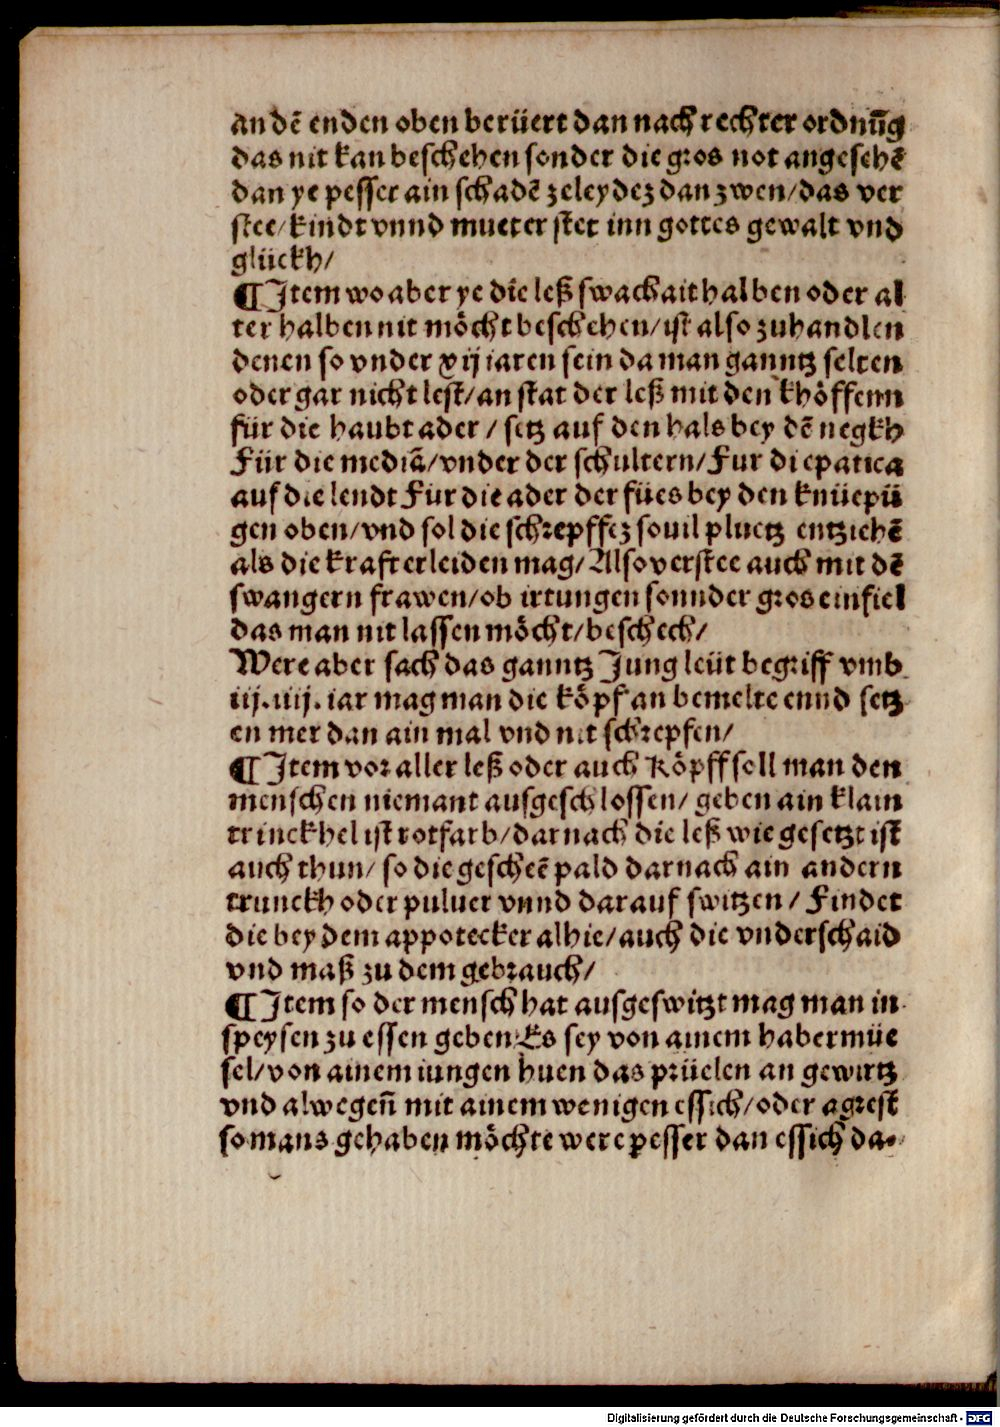 an dē enden oben berüert dan nach rechter ordnūg
das nit kan beschehen sonder die gros not angesehē
dan ye pesser ain schadē zeleydez dan zwen/das ver
stee/kindt vnnd mueter stet inn gottes gewalt vnd
glückh/
¶Item wo aber ye die leß swachait halben oder al
ter halben nit möcht beschehen/ist also zuhandlen
denen so vnder xij iaren sein da man ganntz selten
oder gar nicht lest/an stat der leß mit den khöffenn
für die haubt ader / setz auf den hals bey dē negkh
Für die mediā/vnder der schultern/Fur di epatica
auf die lendt Fur die ader der fües bey den knüepü
gen oben/vnd sol die schrepffez souil pluetz entziehē
als die kraft erleiden mag/Also verstee auch mit dē
swangern frawen/ob irtungen sonnder gros einfiel
das man nit lassen möcht/beschech/
Were aber sach das ganntz Jung leüt begriff vmb
iij.iiij. iar mag man die köpf an bemelte ennd setz
en mer dan ain mal vnd nit schrepfen/
¶Item vor aller leß oder auch Köpff soll man den
menschen niemant ausgeschlossen/ geben ain klain
trinckhel ist rotfarb/darnach die leß wie gesetzt ist
auch thun/ so die gescheē pald darnach ain andern
trunckh oder puluer vnnd darauf switzen / Findet
die bey dem appotecker alhie/auch die vnderschaid
vnd maß zu dem gebrauch/
¶Item so der mensch hat ausgeswitzt mag man in
speysen zu essen geben:Es sey von ainem habermüe
sel/von ainem iungen huen das prüelen an gewirtz
vnd alwegeñ mit ainem wenigen essich/oder agrest
so mans gehaben möchte were pesser dan essich da-
Digitalisierung gefördert durch die Deutsche Forschungsgemeinschaft - DFG